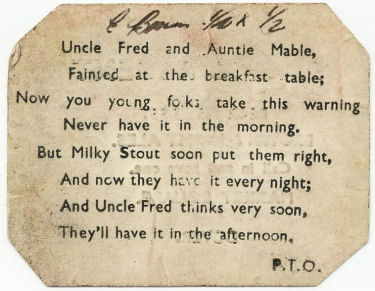 Uncle Fred and Auntie Mable,
Fainted at the breakfast table;
Now you young folks take this warning
Never have it in the morning.
But Milky Stout soon put them right,
And now they have it every night;
And Uncle Fred thinks very soon,
They'll have it in the afternoon.
P.T.O.